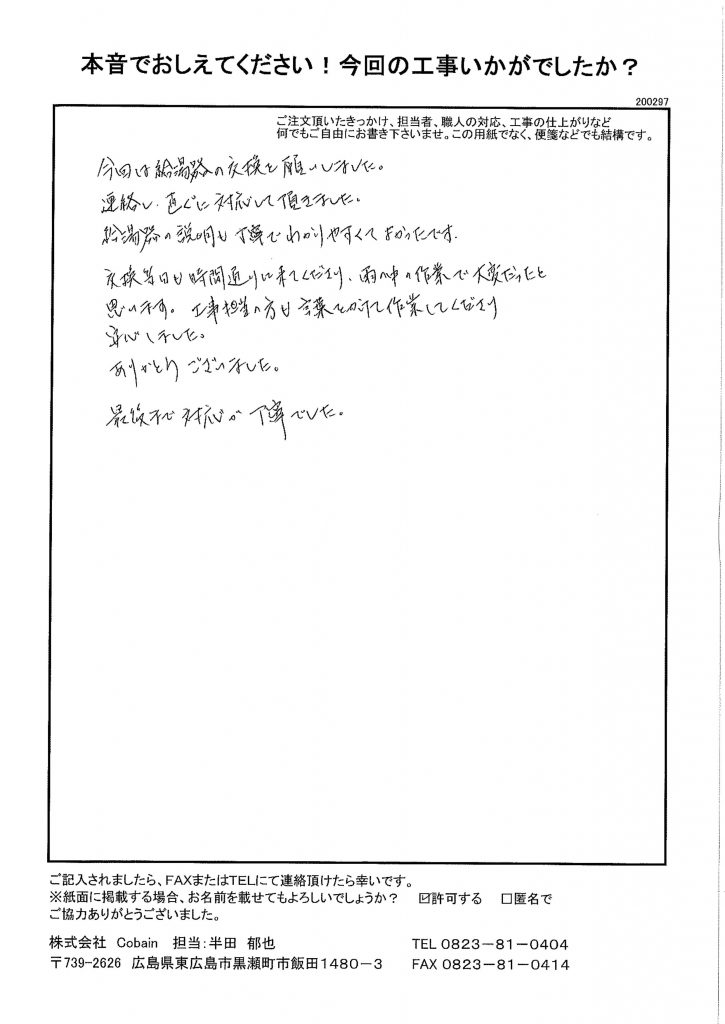 本音でおしえてください！今回の工事いかがでしたか？
200297
ご注文頂いたきっかけ、担当者、職人の対応、工事の仕上がりなど
何でもご自由にお書き下さいませ。この用紙でなく、便箋などでも結構です。
今回は給湯器の交換を願いしました。
連絡し、直ぐに対応して頂きました。
給湯器の説明も丁寧でわかりやすくてよかったです。
交換当日も時間通りに来てくださり、雨の中の作業で大変だったと
思います。工事担当の方も言葉をかけて作業してくださり
安心しました。
ありがとうございました。
最後まで対応が丁寧でした。
ご記入されましたら、FAXまたはTELにて連絡頂けたら幸いです。
※紙面に掲載する場合、お名前を載せてもよろしいでしょうか？ ☑許可する □匿名で
ご協力ありがとうございました。
株式会社 Cobain 担当：半田 郁也 TEL 0823－81－0404
〒739-2626 広島県東広島市黒瀬町市飯田1480－3 FAX 0823－81－0414